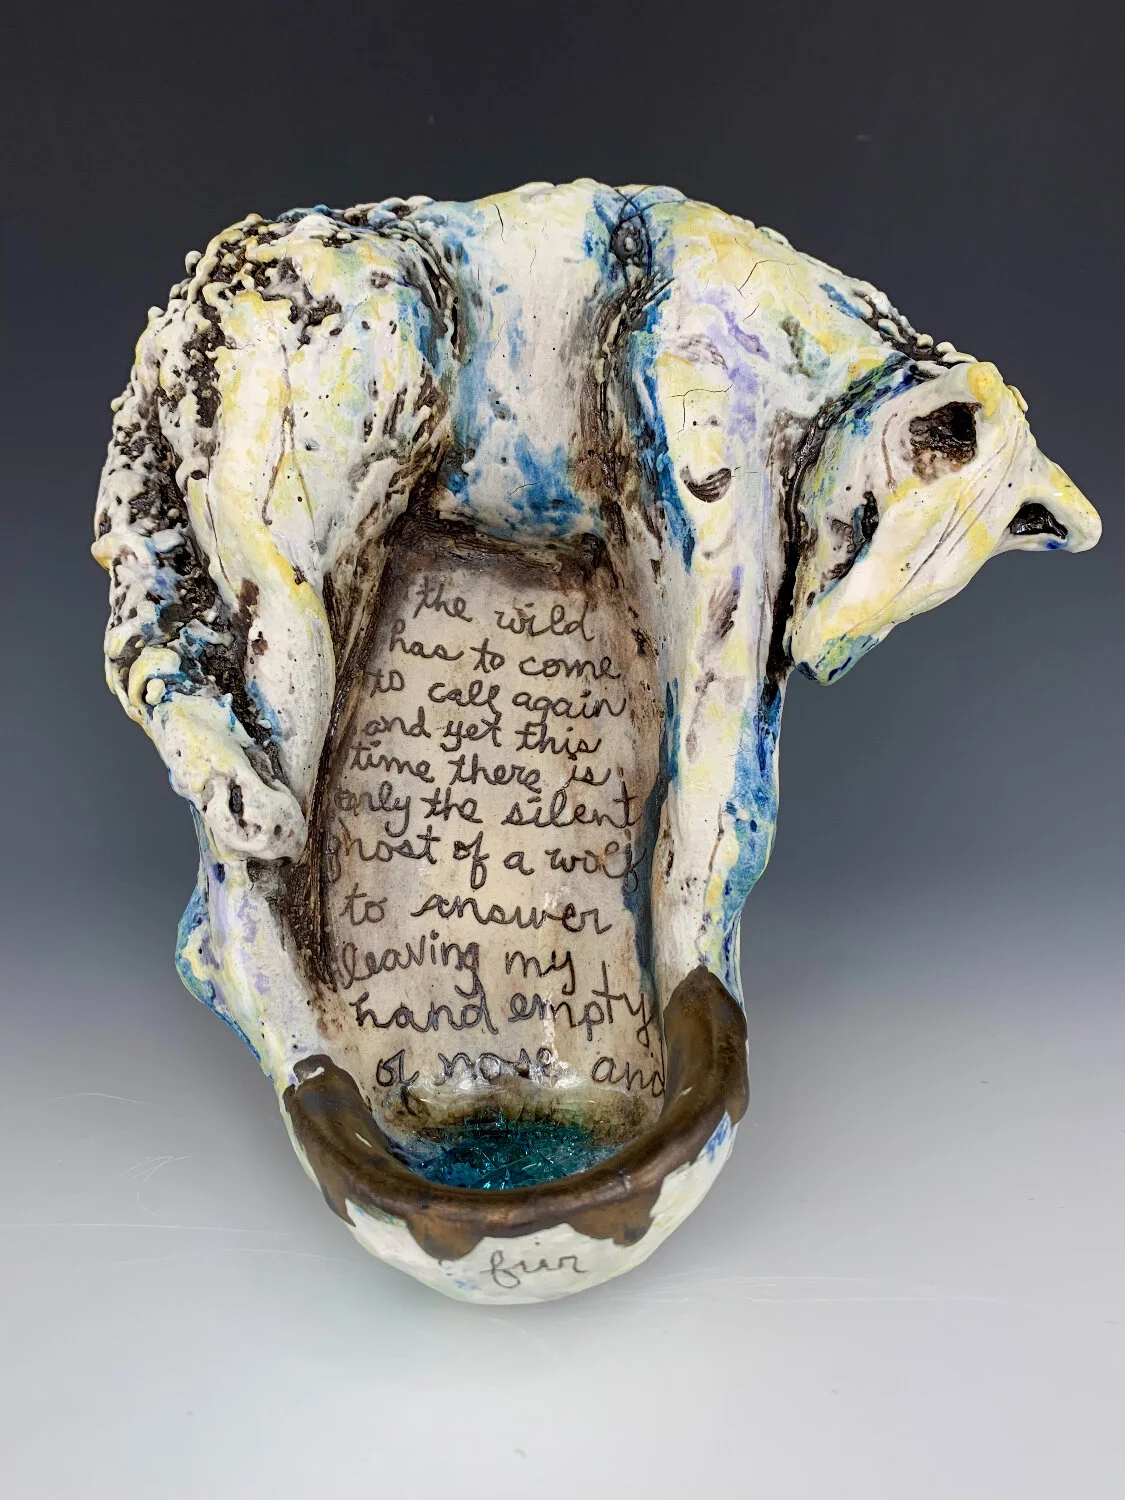 the wild
has to come
to call again
and yet this
time there is
only the silent
ghost of a wolf
to answer
leaving my
hand empty
of nose and
fur